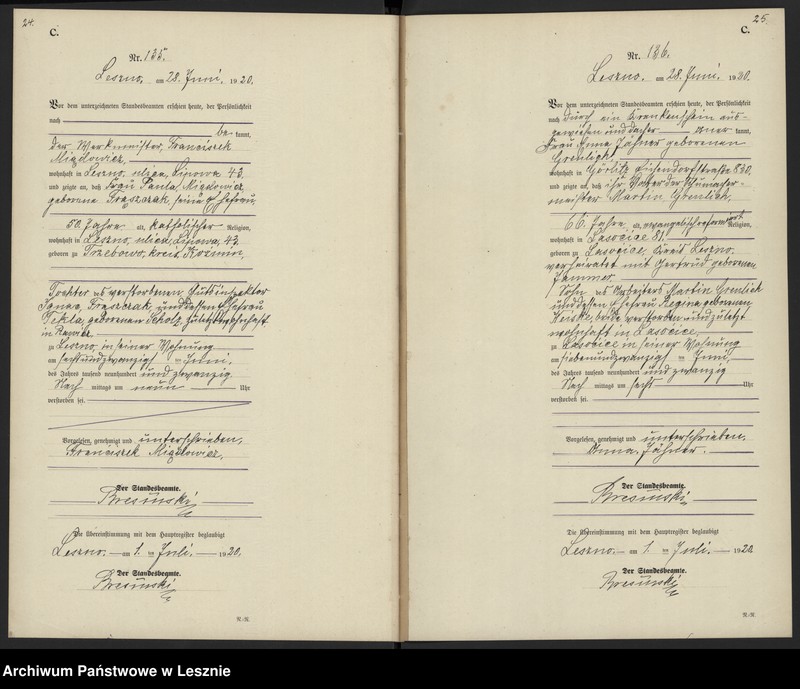 24.
C.
Nr. 135.
Leszno, am 28. Juni. 1920.
Vor dem unterzeichneten Standesbeamten erschien heute, der Persönlichkeit
nach
be kannt,
der Werkmeister, Franciszek
Migdowicz,
wohnhaft in Leszno, ulica, Lipowa 43.
und zeigte an, daß Frau Paula, Migdowicz
geborene Fraszczak, seine Ehefrau,
50. Jahre alt, katholischer Religion,
wohnhaft in Leszno, ulica, Lipowa, 43.
geboren zu Trzebowo, kreis,
Tochter des verstorbenen Gutsinspektor
Ignac, Fraszczak, und dessen Ehefrau
Tekla, geborenen Scholz, zuletzt wohnhaft
in Rawicz
zu Leszno, in seiner Wohnung
am sechsundzwanzigs ten Juni,
des Jahres tausend neunhundert und zwanzig
Nach mittags um neun Uhr
verstorben sei.
Vorgelesen, genehmigt und unterschrieben,
Franciszek Migdowicz,
Der Standesbeamte.
Bresinski
Die Übereinstimmung mit dem Hauptregister beglaubigt
Leszno. am 1. ten Juli. 1920.
Der Standesbeamte.
Bresinski
R.-R.
25.
C.
Nr. 136.
Leszno. am 28. Juni. 1920.
Vor dem unterzeichneten Standesbeamten erschien heute, der Persönlichkeit
nach durch ein Krankenschein aus-
gewiesen und daher aner kannt,
Frau Anna Jähner geborenen
Grenlich,
wohnhaft in Görlitz
und zeigte an, daß ihr Vater der Schuhmacher-
meister Martin Grenlich,
66. Jahre alt, evangelisch reformiert Religion,
wohnhaft in Lasocice 81.
geboren zu Lasocice, Kreis Leszno,
verheiratet mit Gertrud geborenen
Jammer.
Sohn des Arbeiters Martin Grenlich
und dessen Ehefrau Regina geborenen
beide verstorben und zuletzt
wohnhaft in Lasocice.
zu Lasocice in seiner Wohnung
am siebenundzwanzigs ten Juni,
des Jahres tausend neunhundert und zwanzig
Nach mittags um sechs Uhr
verstorben sei.
Vorgelesen, genehmigt und unterschrieben.
Anna. Jähner.
Der Standesbeamte.
Bresinski
Die Übereinstimmung mit dem Hauptregister beglaubigt
Leszno. am 1. ten Juli. 1920.
Der Standesbeamte.
Bresinski
R.-R.
Archiwum Państwowe w Lesznie